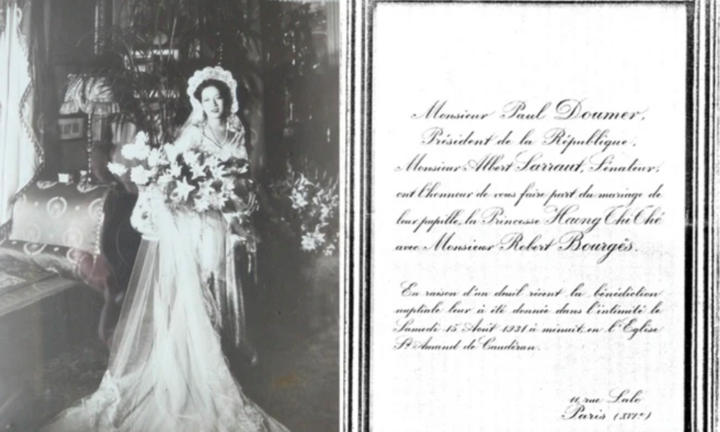 Monsieur Paul Doumer,
Président de la République,
Monsieur Albert Sarraut, Sénateur,
ont l'honneur de vous faire part du mariage de
leur pupille, la Princesse Hoang Thi Thé
avec Monsieur Robert Bourgès.
En raison d'un deuil récent la bénédiction
nuptiale leur a été donnée dans l'intimité le
Samedi 15 Août 1931 à minuit en l'Eglise
St Amand de Caudéran.
11, rue Lalo
Paris (XVIe)